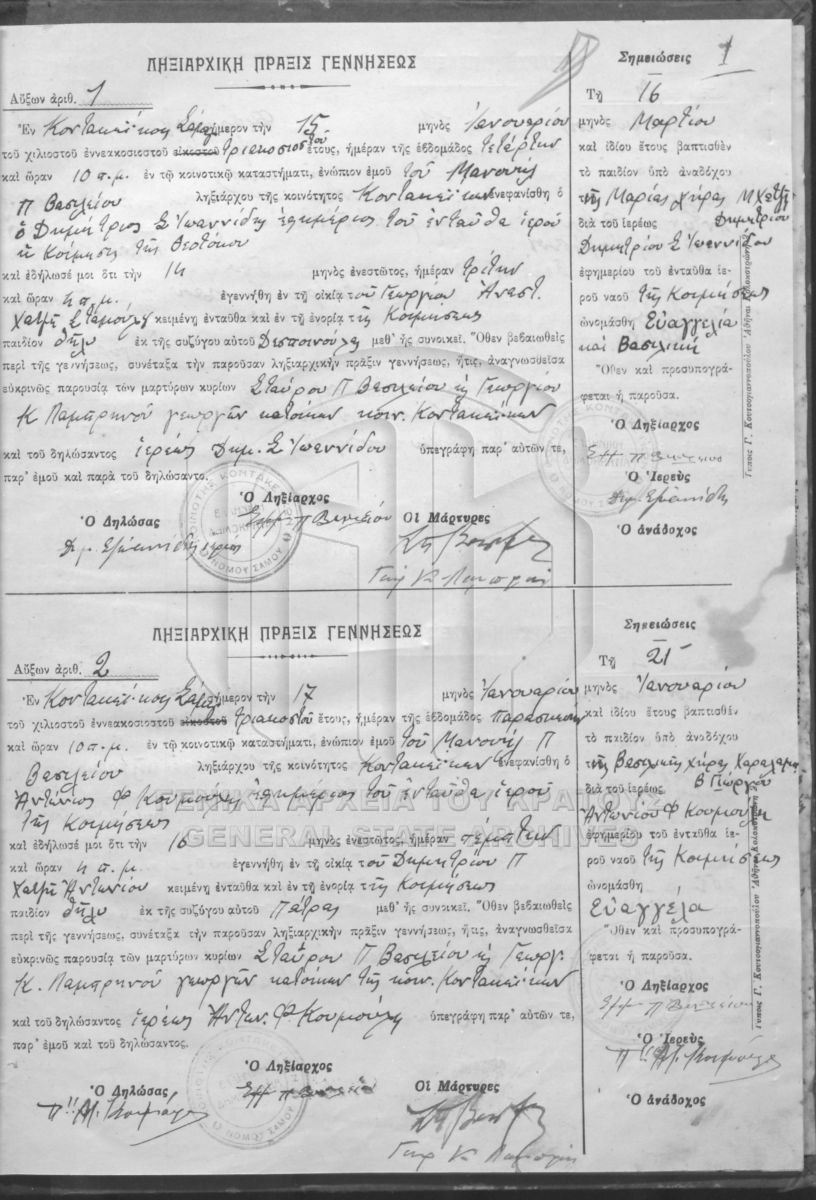 ΛΗΞΙΑΡΧΙΚΗ ΠΡΑΞΙΣ ΓΕΝΝΗΣΕΩΣ
Αὔξων ἀριθ. 1
Ἐν Κοντακέϊκοις Σάμου σήμερον τὴν 15 μηνὸς Ἰανουαρίου
τοῦ χιλιοστοῦ ἐννεακοσιοστοῦ εἰκοστοῦ τριακοσιοστοῦ ἔτους, ἡμέραν τῆς ἑβδομάδος τετάρτην
καὶ ὥραν 10 π.μ. ἐν τῷ κοινοτικῷ καταστήματι, ἐνώπιον ἐμοῦ τοῦ Μανουὴλ
Π Βασιλείου ληξιάρχου τῆς κοινότητος Κοντακεΐκων ἐνεφανίσθη ὁ
ὁ Δημήτριος Σ Ἰωαννίδης ἐφημέριος τοῦ ἐνταῦθα ἱεροῦ
ἡ Κοίμησις τῆς Θεοτόκου
καὶ ἐδήλωσέ μοι ὅτι τὴν 14 μηνὸς ἐνεστῶτος, ἡμέραν τρίτην
καὶ ὥραν π.μ. ἐγεννήθη ἐν τῇ οἰκίᾳ τοῦ Γεωργίου Ἀναστ.
Χατζῆ Σταμούλη κειμένῃ ἐνταῦθα καὶ ἐν τῇ ἐνορίᾳ τῆς Κοιμήσεως
παιδίον θῆλυ ἐκ τῆς συζύγου αὐτοῦ Δεσποινούλης μεθ᾽ ἧς συνοικεῖ. Ὅθεν βεβαιωθεὶς
περὶ τῆς γεννήσεως, συνέταξα τὴν παροῦσαν ληξιαρχικὴν πρᾶξιν γεννήσεως, ἥτις, ἀναγνωσθεῖσα
εὐκρινῶς παρουσίᾳ τῶν μαρτύρων κυρίων Σταύρου Π Βασιλείου κ Γεωργίου
Κ Λαμπρινοῦ γεωργῶν κατοίκων κοιν. Κοντακεΐκων
καὶ τοῦ δηλώσαντος ἱερέως Δημ. Σ Ἰωαννίδου ὑπεγράφη παρ᾽ αὐτῶν τε,
παρ᾽ ἐμοῦ καὶ παρὰ τοῦ δηλώσαντο.
Ὁ Ληξίαρχος
Ὁ Δηλώσας Οἱ Μάρτυρες
Σημειώσεις 1
Τῇ 16
μηνὸς Μαρτίου
καὶ ἰδίου ἔτους βαπτισθὲν
τὸ παιδίον ὑπὸ ἀναδόχου
τῆς Μαρίας χήρας Μ Χατζῆ
Δημητρίου
διὰ τοῦ ἱερέως
Δημητρίου Σ Ἰωαννίδου
ἐφημερίου τοῦ ἐνταῦθα ἱε-
ροῦ ναοῦ τῆς Κοιμήσεως
ὠνομάσθη Εὐαγγελία
καὶ Βασιλική
Ὅθεν καὶ προσυπογρά-
φεται ἡ παροῦσα.
Ὁ Ληξίαρχος
Ὁ Ἱερεὺς
Ὁ ἀνάδοχος
ΛΗΞΙΑΡΧΙΚΗ ΠΡΑΞΙΣ ΓΕΝΝΗΣΕΩΣ
Αὔξων ἀριθ. 2
Ἐν Κοντακεΐκοις Σάμου σήμερον τὴν 17 μηνὸς Ἰανουαρίου
τοῦ χιλιοστοῦ ἐννεακοσιοστοῦ εἰκοστοῦ τριακοστοῦ ἔτους, ἡμέραν τῆς ἑβδομάδος παρασκευὴν
καὶ ὥραν 10 π.μ. ἐν τῷ κοινοτικῷ καταστήματι, ἐνώπιον ἐμοῦ τοῦ Μανουὴλ Π
Βασιλείου ληξιάρχου τῆς κοινότητος Κοντακεΐκων ἐνεφανίσθη ὁ
Ἀντώνιος Φ Κουμούλης ἐφημέριος τοῦ ἐνταῦθα ἱεροῦ
τῆς Κοιμήσεως
ΓΕΝΙΚΑ ΑΡΧΕΙΑ ΤΟΥ ΚΡΑΤΟΥΣ
GENERAL STATE ARCHIVES
καὶ ἐδήλωσέ μοι ὅτι τὴν 16 μηνὸς ἐνεστῶτος, ἡμέραν πέμπτην
καὶ ὥραν π.μ. ἐγεννήθη ἐν τῇ οἰκίᾳ τοῦ Δημητρίου Π
Χατζῆ Ἀντωνίου κειμένῃ ἐνταῦθα καὶ ἐν τῇ ἐνορίᾳ τῆς Κοιμήσεως
παιδίον θῆλυ ἐκ τῆς συζύγου αὐτοῦ Πάτρας μεθ᾽ ἧς συνοικεῖ. Ὅθεν βεβαιωθεὶς
περὶ τῆς γεννήσεως, συνέταξα τὴν παροῦσαν ληξιαρχικὴν πρᾶξιν γεννήσεως, ἥτις, ἀναγνωσθεῖσα
εὐκρινῶς παρουσίᾳ τῶν μαρτύρων κυρίων Σταύρου Π Βασιλείου κ Γεωργ.
Κ. Λαμπρινοῦ γεωργῶν κατοίκων τῆς κοιν. Κοντακεΐκων
καὶ τοῦ δηλώσαντος ἱερέως Ἀντων. Φ Κουμούλη ὑπεγράφη παρ᾽ αὐτῶν τε,
παρ᾽ ἐμοῦ καὶ τοῦ δηλώσαντος.
Ὁ Ληξίαρχος
Ὁ Δηλώσας Οἱ Μάρτυρες
Σημειώσεις
Τῇ 21
μηνὸς Ἰανουαρίου
καὶ ἰδίου ἔτους βαπτισθὲν
τὸ παιδίον ὑπὸ ἀναδόχου
τῆς Βασιλικῆς χήρας Χαραλάμπ
Β Γιώργου
διὰ τοῦ ἱερέως
Ἀντωνίου Φ Κουμούλη
ἐφημερίου τοῦ ἐνταῦθα ἱε-
ροῦ ναοῦ τῆς Κοιμήσεως
ὠνομάσθη
Εὐαγγέλα
Ὅθεν καὶ προσυπογρά-
φεται ἡ παροῦσα.
Ὁ Ληξίαρχος
Ὁ Ἱερεὺς
Ὁ ἀνάδοχος